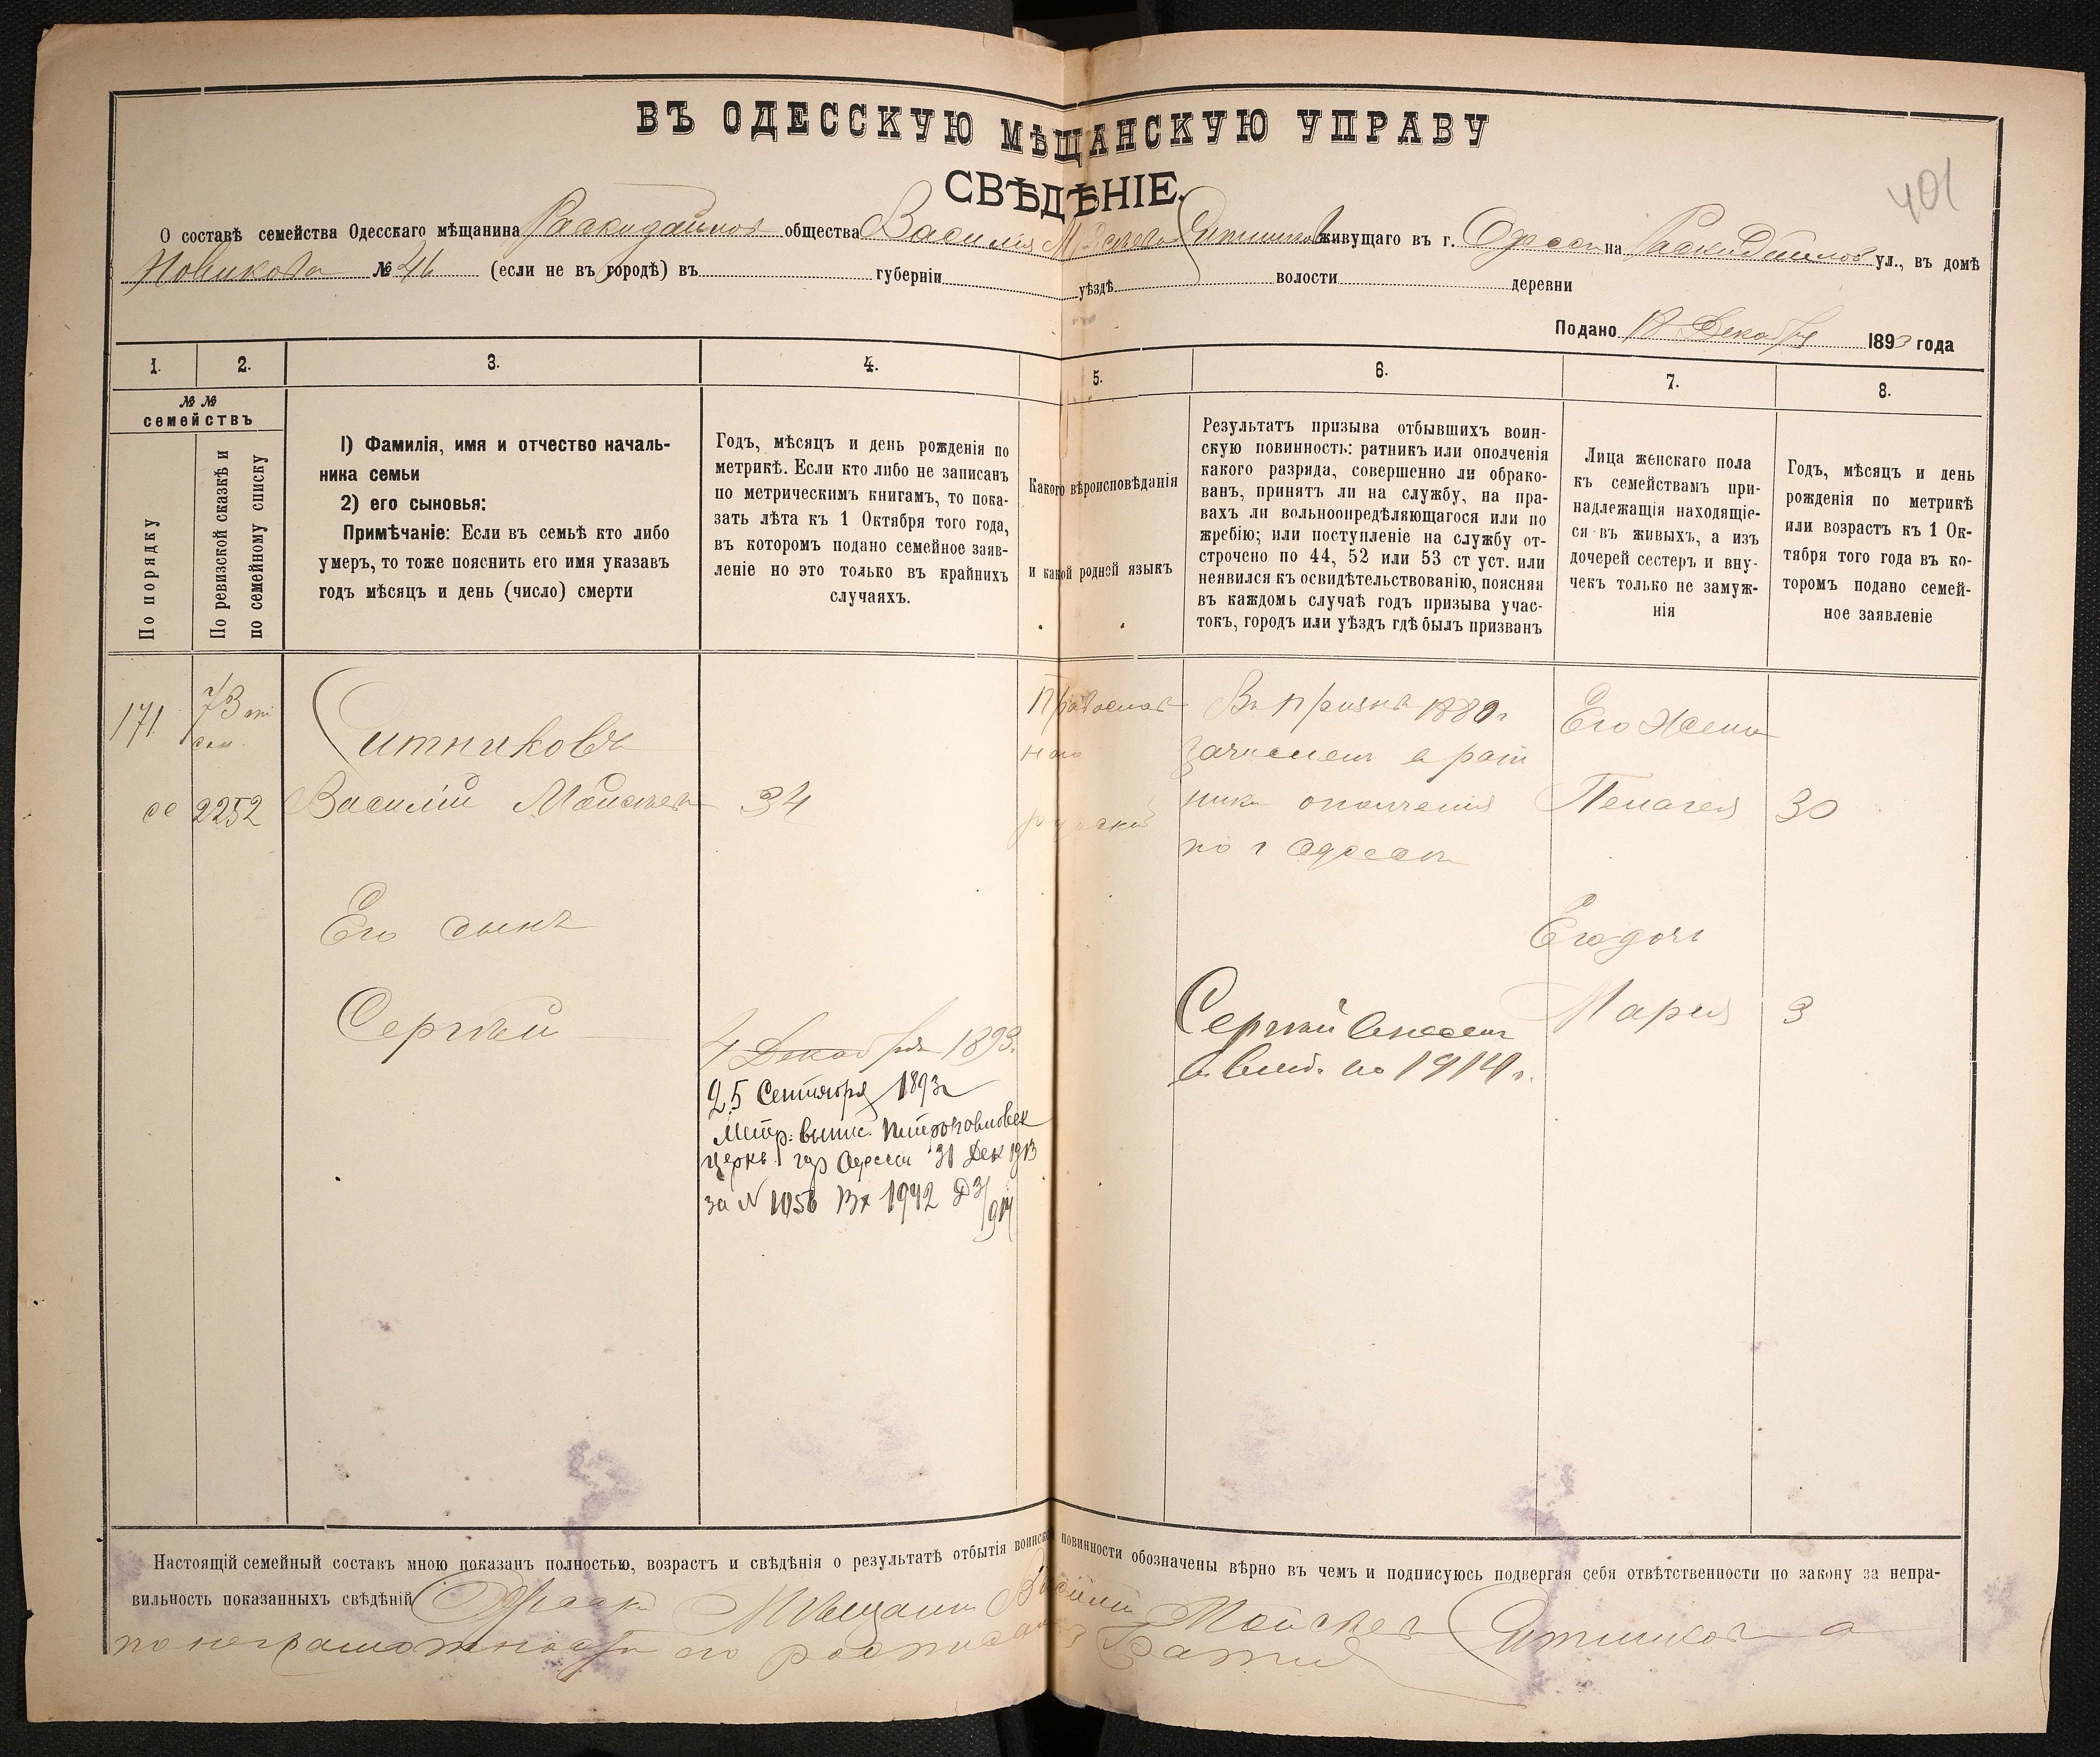 ВЪ ОДЕССКУЮ МѢЩАНСКУЮ УПРАВУ
СВѢДѢНІЕ.
401
О составѣ семейства Одесскаго мѣщанина Раскидайлов общества Василия Ситников живущаго въ г. Одессы на Раскидайлов ул., въ домѣ
Новикова № 46 (если не въ городѣ) въ губерніи уѣздѣ волости деревни
Подано 18 Декабря 1893 года
1. 2. 3. 4. 5. 6. 7. 8.
№ №
семействъ
По порядку
По ревизской сказкѣ и
по семейному списку
1) Фамилія, имя и отчество началь-
ника семьи
2) его сыновья:
Примѣчаніе: Если въ семьѣ кто либо
умеръ, то тоже пояснить его имя указавъ
годъ мѣсяцъ и день (число) смерти
Годъ, мѣсяцъ и день рожденія по
метрикѣ. Если кто либо не записанъ
по метрическимъ книгамъ, то пока-
зать лѣта къ 1 Октября того года,
въ которомъ подано семейное заяв-
леніе но это только въ крайнихъ
случаяхъ.
Какого вѣроисповѣданія
и какой родной языкъ
Результатъ призыва отбывшихъ воин-
скую повинность: ратникъ или ополченія
какого разряда, совершенно ли обрако-
ванъ, принятъ ли на службу, на пра-
вахъ ли вольноопредѣляющагося или по
жребію; или поступленіе на службу от-
строчено по 44, 52 или 53 ст уст. или
неявился къ освидѣтельствованію, поясняя
въ каждомъ случаѣ годъ призыва учас-
токъ, городъ или уѣздъ гдѣ былъ призванъ
Лица женскаго пола
къ семействамъ при-
надлежащія находящіе-
ся въ живыхъ, а изъ
дочерей сестеръ и вну-
чекъ только не замуж-
нія
Годъ, мѣсяцъ и день
рожденія по метрикѣ
или возрастъ къ 1 Ок-
тября того года въ ко-
торомъ подано семей-
ное заявленіе
171
73
2252
Ситниковъ
Василій Мойсѣев
34
Православ
ного
русский
В призыв 1880 г
зачислен в рат
ники ополчения
по г Одессы
Его Жена
Пелагея 30
Его сынъ
Сергѣй
4 Декабря 1893.
25 Сентября 1893 г
Метр. выпис. Петропавловск
церкв. гор Одессы 31 Дек 1913
за N 1056 Вх 1942
Его дочь
Мария 3
Сергѣй внесен
в по 1914 г.
Настоящій семейный составъ мною показанъ полностью, возрастъ и свѣдѣнія о результатѣ отбытія воинской повинности обозначены вѣрно въ чемъ и подписуюсь подвергая себя отвѣтственности по закону за непра-
вильность показанныхъ свѣдѣній Мѣщанин Василий Мойсѣев Ситников а
по неграмотности